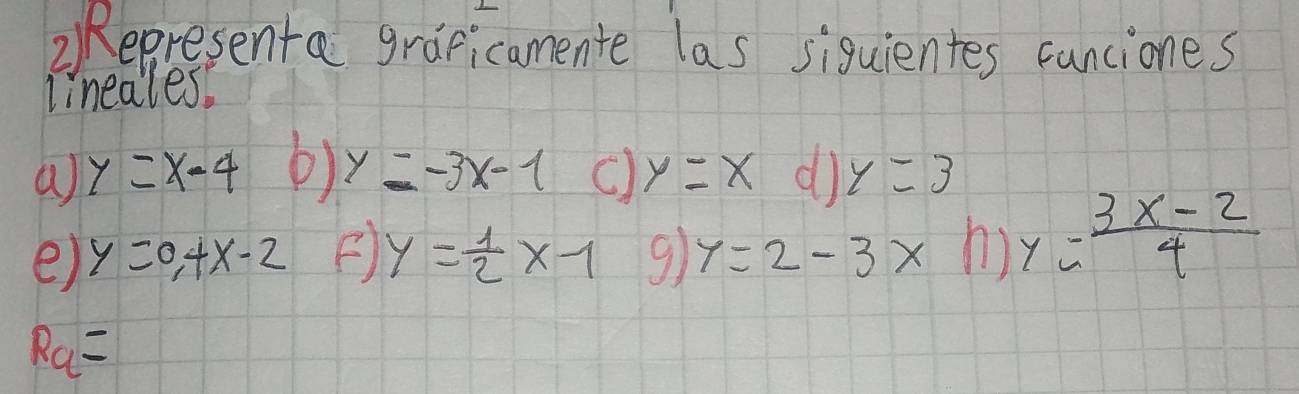 2) Representa gráficamente las siguientes funciones
lineales.
a) y = x - 4 b) y = -3x - 1 c) y = x d) y = 3
e) y = 0,4x - 2 f) y = \frac{1}{2} x - 1 g) y = 2 - 3x h) y = \frac{3x - 2}{4}
Ra =